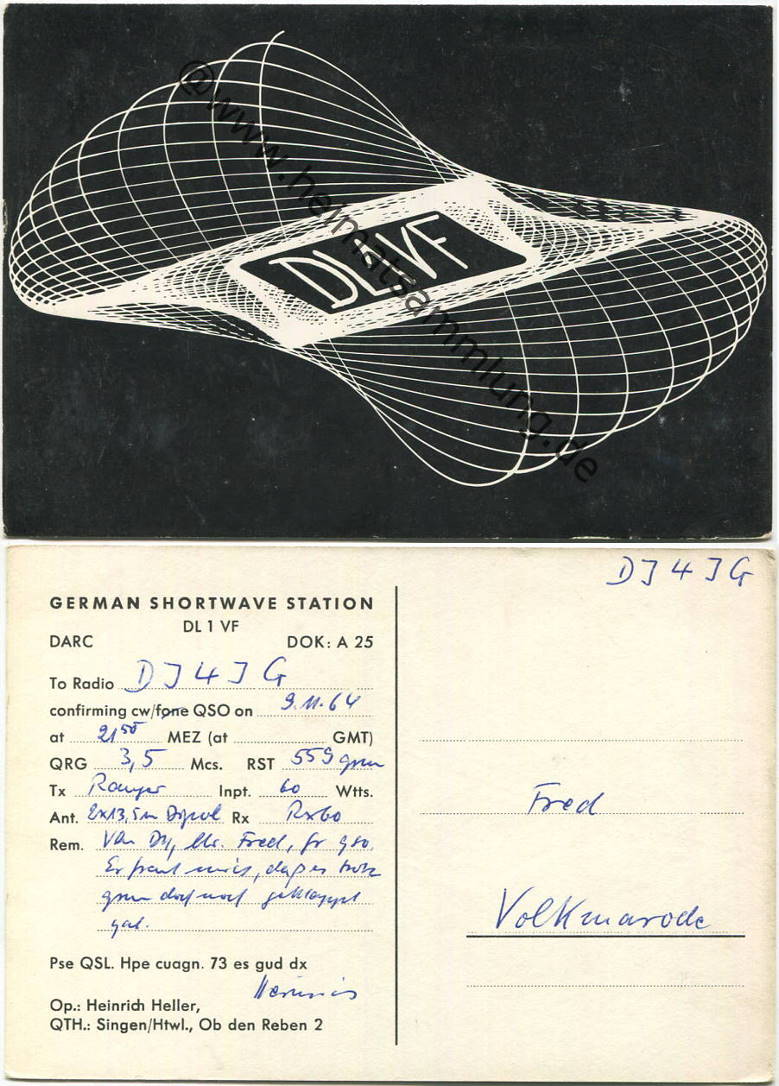 DL1VF
@www.heimatsammlung.de
DJ4JG
GERMAN SHORTWAVE STATION
DL 1 VF
DARC DOK: A 25
To Radio DJ4JG
confirming cw/fone QSO on 9.11.64
at 21 50 MEZ (at GMT)
QRG 3,5 Mcs. RST 559 qrm
Tx Ranger Inpt. 60 Wtts.
Ant. 2x13,5m Dipol Rx Rx60
Rem. Fred, fr qso.
Er freut mich, daß es trotz
qrm doch noch geklappt
hat.
Pse QSL. Hpe cuagn. 73 es gud dx
Heinrich
Op.: Heinrich Heller,
QTH.: Singen/Htwl., Ob den Reben 2
Fred
Volkmarode